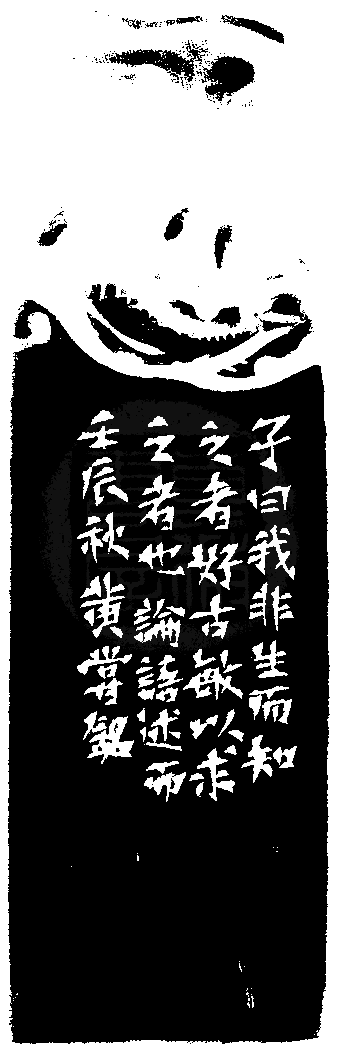 子曰我非生而知
之者好古敏以求
之者也論語述而
壬辰秋黃嘗銘